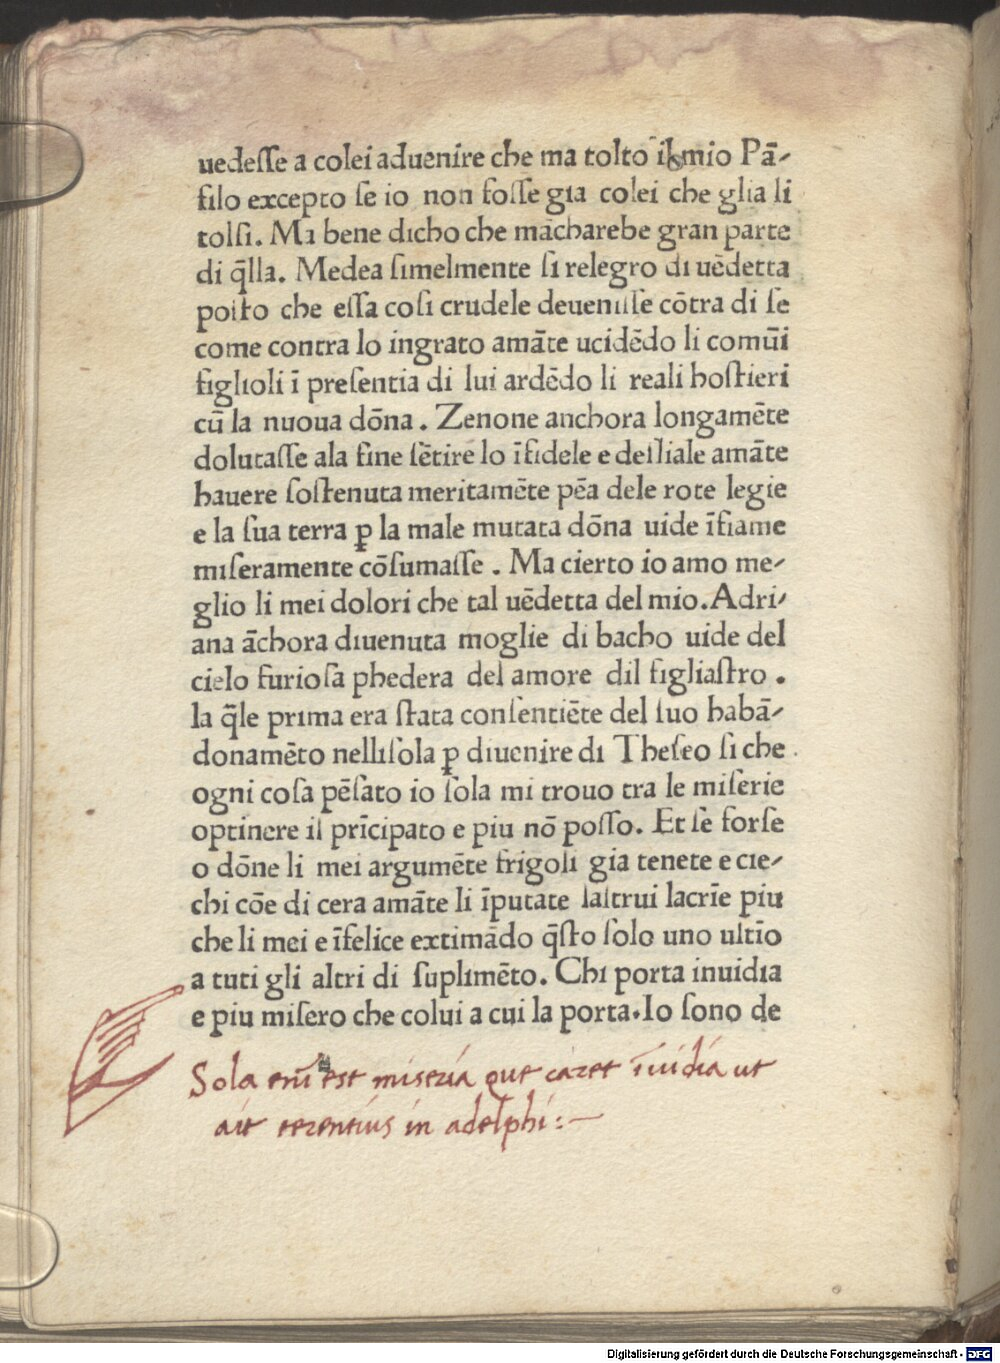 uedesse a colei aduenire che ma tolto il mio Pā-
filo excepto se io non fosse gia colei che glia li
tolsi. Ma bene dicho che mācharebe gran parte
di q̄lla. Medea simelmente si relegro di uēdetta
posto che essa cosi crudele deuenisse cōtra di se
come contra lo ingrato amāte ucidēdo li comūi
figlioli ī presentia di lui ardēdo li reali hostieri
cū la nuoua dōna. Zenone anchora longamēte
dolutasse ala fine sētire lo īfidele e desliale amāte
hauere sostenuta meritamēte pēa dele rote legie
e la sua terra ꝑ la male mutata dōna uide īfiame
miseramente cōsumasse. Ma cierto io amo me-
glio li mei dolori che tal uēdetta del mio. Adri-
ana āchora diuenuta moglie di bacho uide del
cielo furiosa phedera del amore dil figliastro.
la q̄le prima era stata consentiēte del suo habā-
donamēto nellisola ꝑ diuenire di Theseo si che
ogni cosa pēsato io sola mi trouo tra le miserie
optinere il prīcipato e piu nō posso. Et se forse
o dōne li mei argumēte frigoli gia tenete e cie-
chi cōe di cera amāte li īputate laltrui lacrīe piu
che li mei e īfelice extimādo q̄sto solo uno ultīo
a tuti gli altri di suplimēto. Chi porta inuidia
e piu misero che colui a cui la porta. Io sono de
Sola enī est miseria que caret īuidia ut
ait terentius in adelphi:—
Digitalisierung gefördert durch die Deutsche Forschungsgemeinschaft - DFG